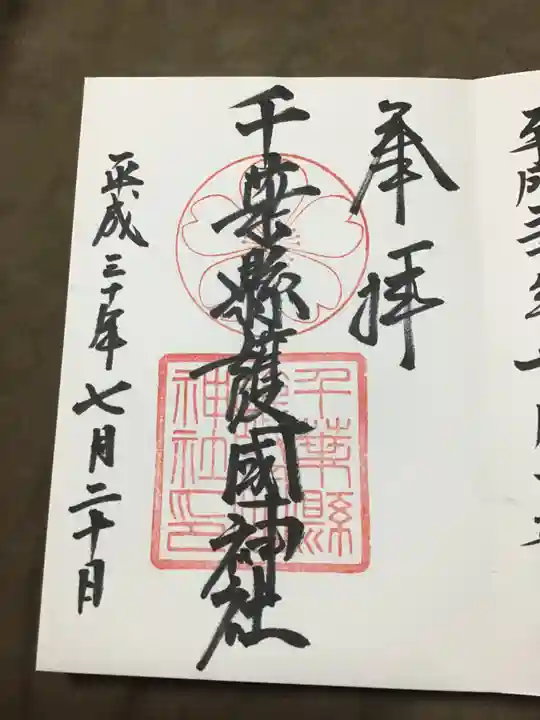 奉拝
千葉縣護國神社
千葉縣
神社印
平成三十年七月二十日